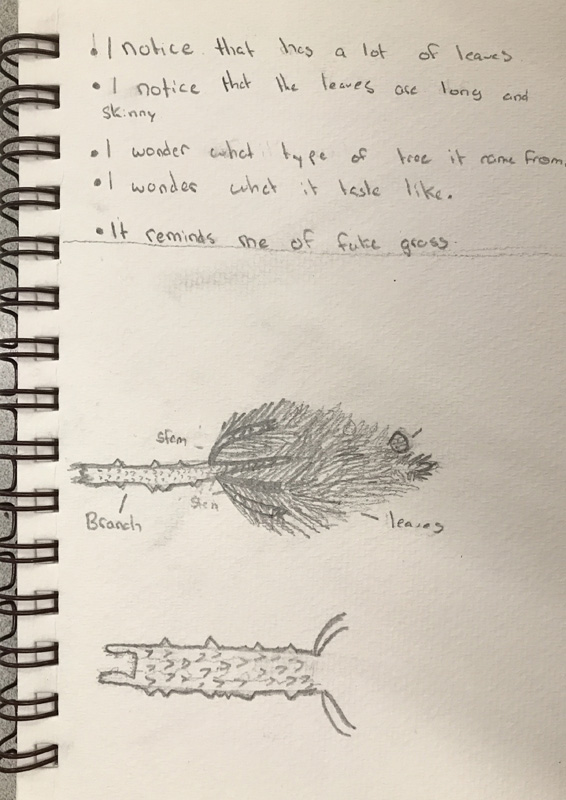 • I notice that has a lot of leaves
• I notice that the leaves are long and
skinny
• I wonder what type of tree it came from.
• I wonder what it taste like.
• It reminds me of fake grass.
Stem
Stem
Branch
leaves